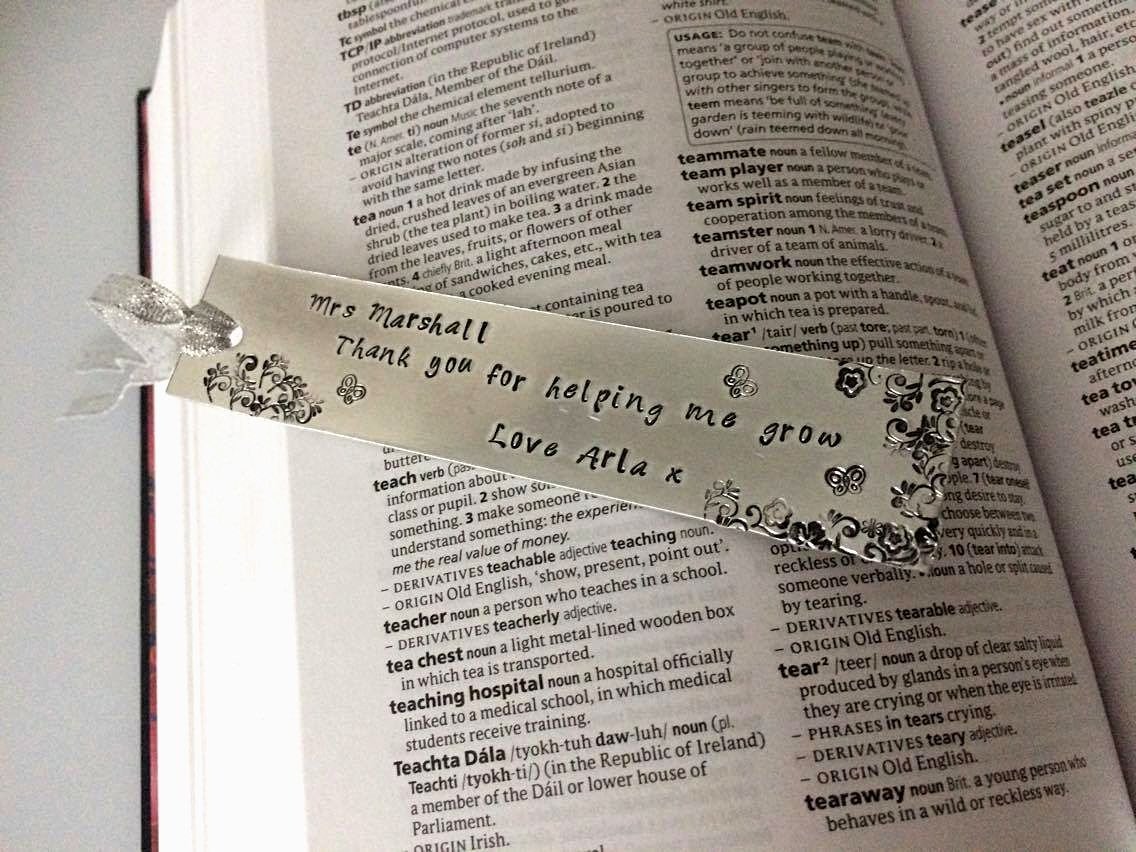 tbsp
Tc symbol the chemical
TCP/IP abbreviation trademark
protocol/Internet protocol, used to
connection of computer systems to the
Internet.
TD abbreviation (in the Republic of Ireland)
Teachta Dála, Member of the Dáil.
Te symbol the chemical element tellurium.
te (N. Amer. ti) noun Music the seventh note of a
major scale, coming after 'lah'.
– ORIGIN alteration of former si, adopted to
avoid having two notes (soh and si) beginning
with the same letter.
tea noun 1 a hot drink made by infusing the
dried, crushed leaves of an evergreen Asian
shrub (the tea plant) in boiling water. 2 the
dried leaves used to make tea. 3 a drink made
from the leaves, fruits, or flowers of other
4 chiefly Brit. a light afternoon meal
of sandwiches, cakes, etc., with tea
a cooked evening meal.
containing tea
is poured to
Mrs Marshall
Thank you for helping me grow
Love Arla x
teach verb
information about
class or pupil. 2 show
something. 3 make someone
understand something: the
me the real value of money.
– DERIVATIVES teachable adjective teaching noun.
– ORIGIN Old English, 'show, present, point out'.
teacher noun a person who teaches in a school.
– DERIVATIVES teacherly adjective.
tea chest noun a light metal-lined wooden box
in which tea is transported.
teaching hospital noun a hospital officially
linked to a medical school, in which medical
students receive training.
Teachta Dála /tyokh-tuh daw-luh/ noun (pl.
Teachti /tyokh-ti/) (in the Republic of Ireland)
a member of the Dáil or lower house of
Parliament.
ORIGIN Irish.
white shirt.
– ORIGIN Old English.
USAGE: Do not confuse team with
means 'a group of people playing or working
together' or 'join with another person or
group to achieve something'
with other singers to form the group
teem means 'be full of something'
garden is teeming with wildlife) or 'pour
down' (rain teemed down all morning).
teammate noun a fellow member of a team.
team player noun a person who plays or
works well as a member of a team.
team spirit noun feelings of trust and
cooperation among the members of a team.
teamster noun 1 N. Amer. a lorry driver. 2 a
driver of a team of animals.
teamwork noun the effective action of a
of people working together.
teapot noun a pot with a handle, spout, and
in which tea is prepared.
tear¹ /tair/ verb (past tore; past part. torn) 1
something up) pull something apart or
up the letter. 2 rip a
destroy
apart) destroy
7 (tear oneself
desire to stay.
choose between two
very quickly and in a
10 (tear into) attack
someone verbally. • noun a hole or split caused
by tearing.
– DERIVATIVES tearable adjective.
– ORIGIN Old English.
tear² /teer/ noun a drop of clear salty liquid
produced by glands in a person's eye when
they are crying or when the eye is irritated.
– PHRASES in tears crying.
– DERIVATIVES teary adjective.
– ORIGIN Old English.
tearaway noun Brit. a young person who
behaves in a wild or reckless way.
tease
to have sex with
out) find out something
a mass of information.
tangled wool, hair,
• noun informal 1 a person
teasing someone.
– ORIGIN Old English
teasel (also teazle
plant with spiny
– ORIGIN Old English
teaser noun informal
tea set noun a set
teaspoon noun
sugar to and
held by a
5 millilitres.
teat noun 1
body from
2 Brit. a
by which
milk from
– ORIGIN
teatime
tea
wash
tea